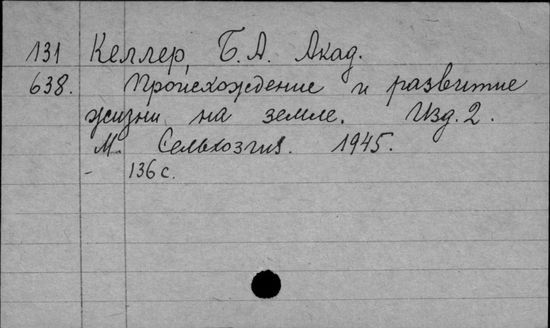 131 Келлер, Б. А. Акад.
638. Происхождение и развитие
жизни на земле. Изд. 2.
М. Сельхозгиз. 1945.
- 136 с.